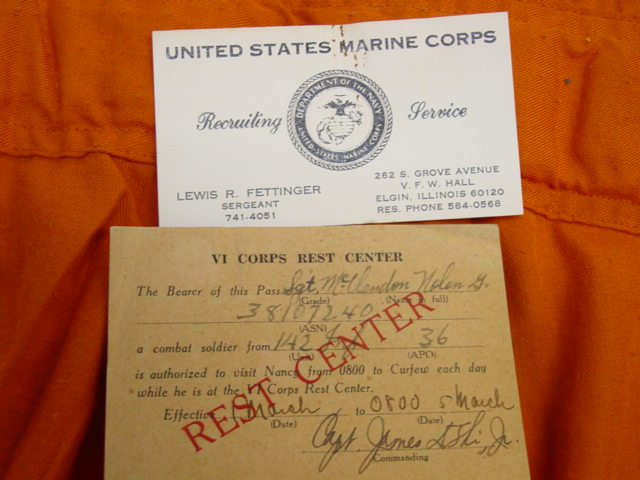 UNITED STATES MARINE CORPS
Recruiting Service
DEPARTMENT OF THE NAVY
UNITED STATES MARINE CORPS
LEWIS R. FETTINGER
SERGEANT
741-4051
262 S. GROVE AVENUE
V. F. W. HALL
ELGIN, ILLINOIS 60120
RES. PHONE 584-0568
VI CORPS REST CENTER
The Bearer of this Pass Sgt. McClendon Nolen G.
(Grade) (Name in full)
38107240
(ASN)
a combat soldier from 142 36
(Unit) (APO)
is authorized to visit Nancy from 0800 to Curfew each day
while he is at the VI Corps Rest Center.
Effective 1 March to 0800 5 March
(Date) (Date)
Capt James Jr.
Commanding
REST CENTER